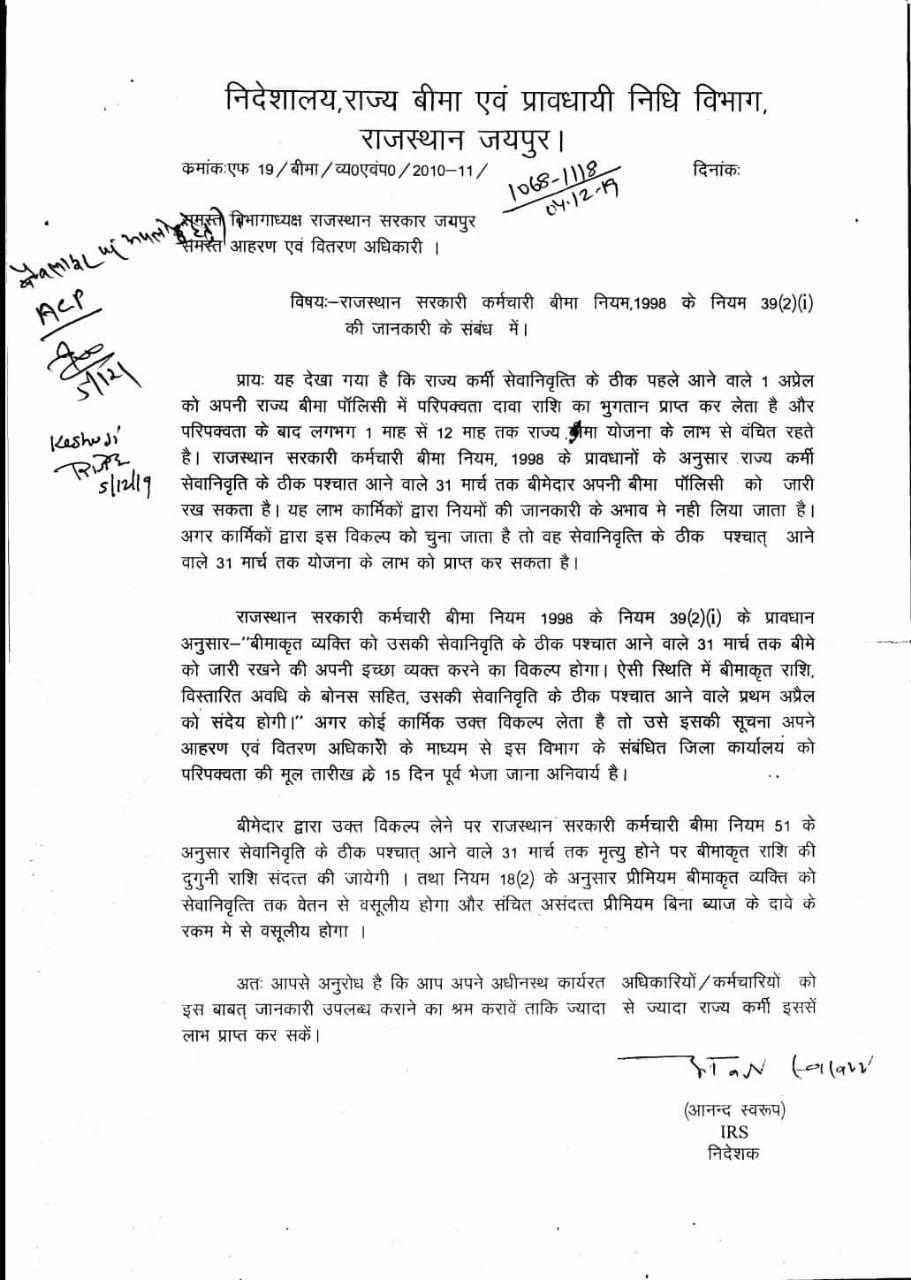 निदेशालय,राज्य बीमा एवं प्रावधायी निधि विभाग,
राजस्थान जयपुर।
कमांकःएफ 19/बीमा/व्य0एवंप0/2010-11/
1068-1118
04.12.19
दिनांकः
समस्त विभागाध्यक्ष राजस्थान सरकार जयपुर
समस्त आहरण एवं वितरण अधिकारी ।
ACP
5/12/
Keshu Ji
5/12/19
विषयः–राजस्थान सरकारी कर्मचारी बीमा नियम,1998 के नियम 39(2)(i)
की जानकारी के संबंध में।
प्रायः यह देखा गया है कि राज्य कर्मी सेवानिवृत्ति के ठीक पहले आने वाले 1 अप्रेल
को अपनी राज्य बीमा पॉलिसी में परिपक्वता दावा राशि का भुगतान प्राप्त कर लेता है और
परिपक्वता के बाद लगभग 1 माह सें 12 माह तक राज्य बीमा योजना के लाभ से वंचित रहते
है। राजस्थान सरकारी कर्मचारी बीमा नियम, 1998 के प्रावधानों के अनुसार राज्य कर्मी
सेवानिवृति के ठीक पश्चात आने वाले 31 मार्च तक बीमेदार अपनी बीमा पॉलिसी को जारी
रख सकता है। यह लाभ कार्मिकों द्वारा नियमों की जानकारी के अभाव मे नही लिया जाता है।
अगर कार्मिकों द्वारा इस विकल्प को चुना जाता है तो वह सेवानिवृत्ति के ठीक पश्चात् आने
वाले 31 मार्च तक योजना के लाभ को प्राप्त कर सकता है।
राजस्थान सरकारी कर्मचारी बीमा नियम 1998 के नियम 39(2)(i) के प्रावधान
अनुसार–"बीमाकृत व्यक्ति को उसकी सेवानिवृति के ठीक पश्चात आने वाले 31 मार्च तक बीमे
को जारी रखने की अपनी इच्छा व्यक्त करने का विकल्प होगा। ऐसी स्थिति में बीमाकृत राशि,
विस्तारित अवधि के बोनस सहित, उसकी सेवानिवृति के ठीक पश्चात आने वाले प्रथम अप्रैल
को संदेय होगी।" अगर कोई कार्मिक उक्त विकल्प लेता है तो उसे इसकी सूचना अपने
आहरण एवं वितरण अधिकारी के माध्यम से इस विभाग के संबंधित जिला कार्यालय को
परिपक्वता की मूल तारीख के 15 दिन पूर्व भेजा जाना अनिवार्य है।
बीमेदार द्वारा उक्त विकल्प लेने पर राजस्थान सरकारी कर्मचारी बीमा नियम 51 के
अनुसार सेवानिवृति के ठीक पश्चात् आने वाले 31 मार्च तक मृत्यु होने पर बीमाकृत राशि की
दुगुनी राशि संदत्त की जायेगी । तथा नियम 18(2) के अनुसार प्रीमियम बीमाकृत व्यक्ति को
सेवानिवृत्ति तक वेतन से वसूलीय होगा और संचित असंदत्त प्रीमियम बिना ब्याज के दावे के
रकम मे से वसूलीय होगा ।
अतः आपसे अनुरोध है कि आप अपने अधीनस्थ कार्यरत अधिकारियों/कर्मचारियों को
इस बाबत् जानकारी उपलब्ध कराने का श्रम करावें ताकि ज्यादा से ज्यादा राज्य कर्मी इससें
लाभ प्राप्त कर सकें।
(आनन्द स्वरूप)
IRS
निदेशक